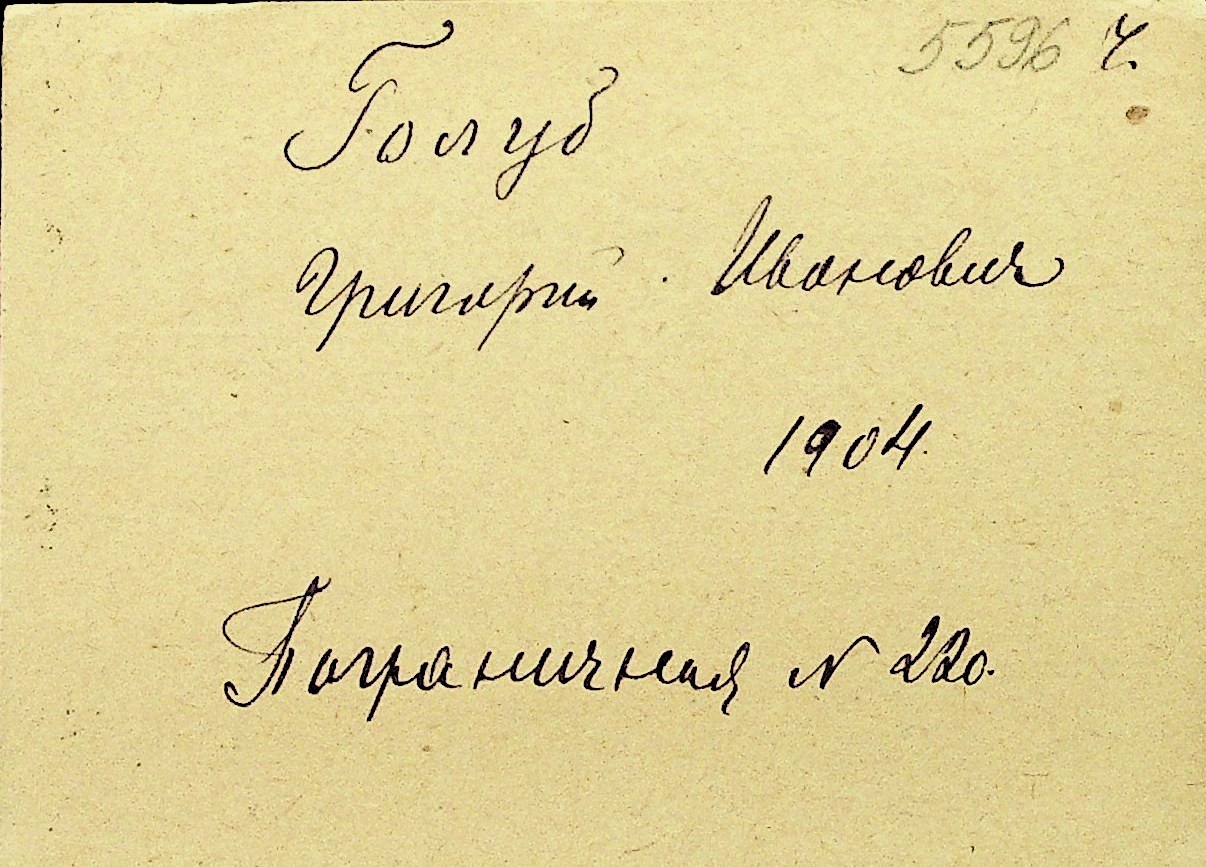 5596 ч.
Голуб
Григорий Иванович
1904.
Пограничная N 220.